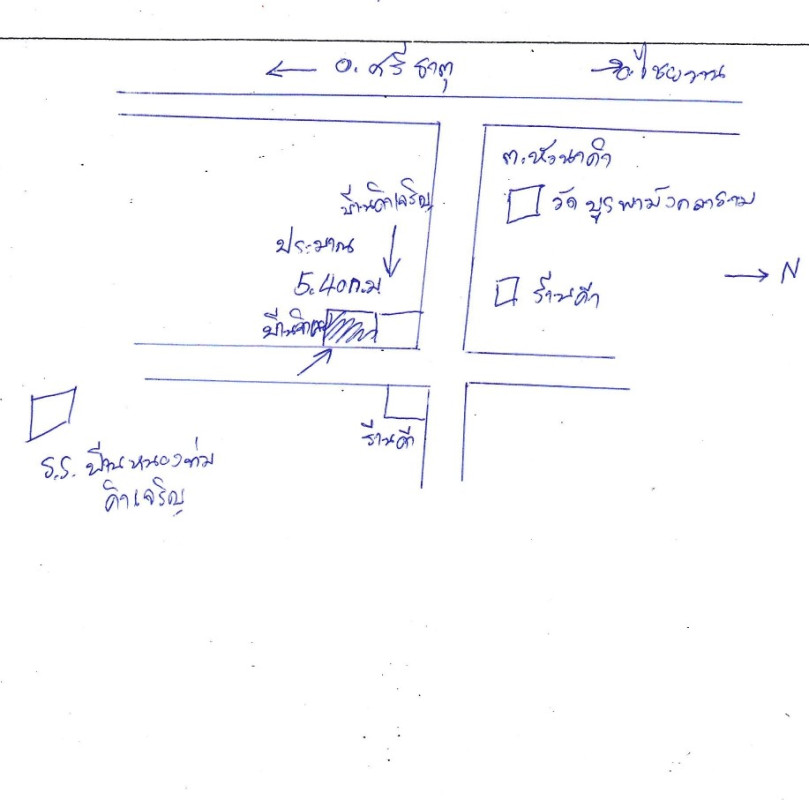 ← อ.ศรีธาตุ
→ อ.ไชยวาน
ต.หัวนาคำ
วัดบูรพามังคลาราม
บ้านคำเจริญ
ประมาณ
5.40 ก.ม.
→ N
ร้านค้า
ร้านค้า
ร.ร. บ้านหนองก่ม
คำเจริญ